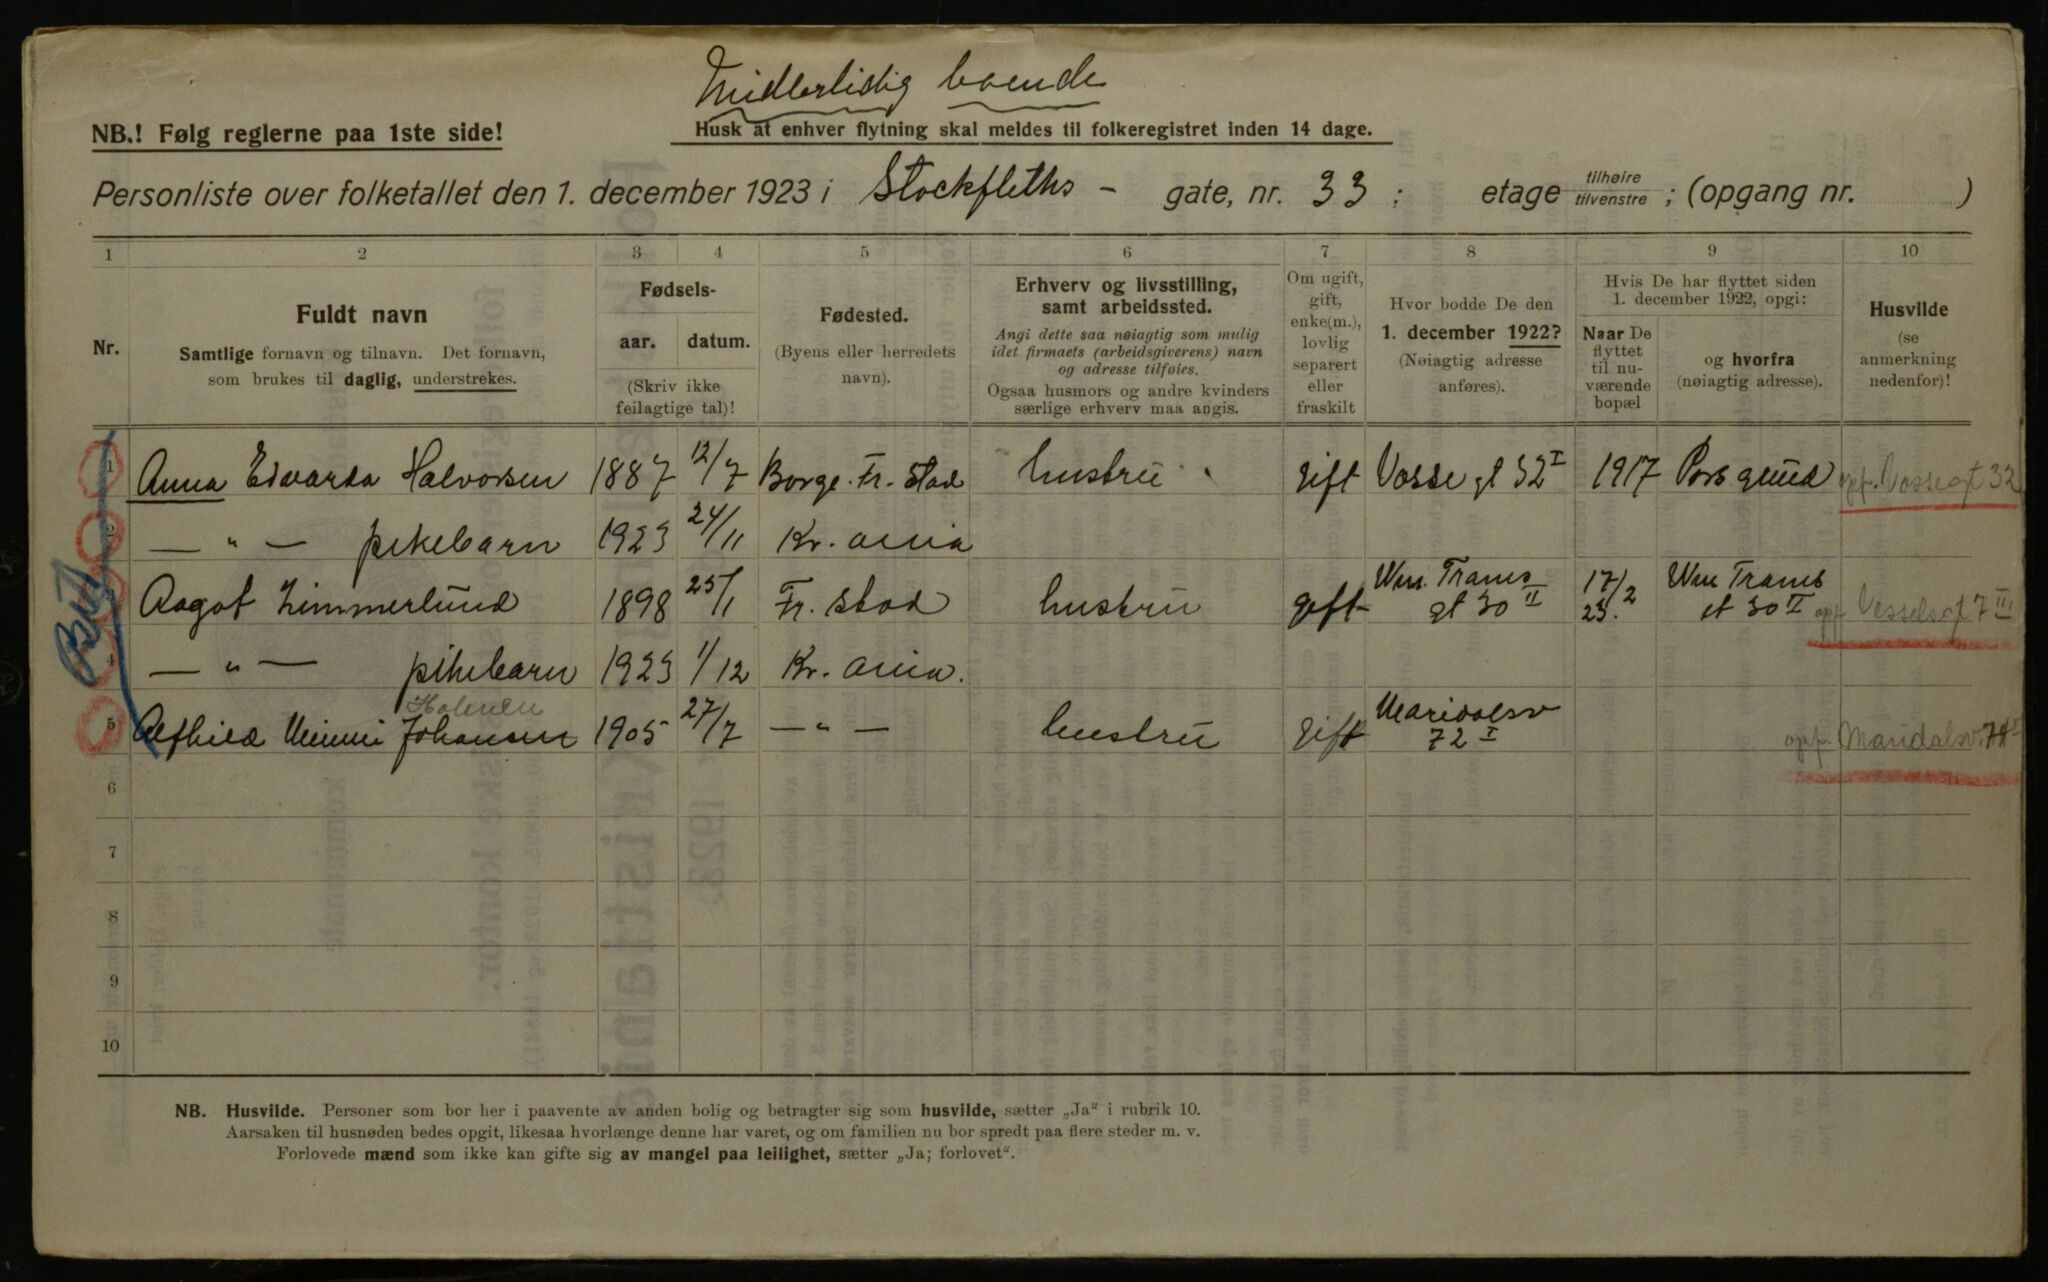 Midlertidig boende
NB.! Følg reglerne paa 1ste side!
Husk at enhver flytning skal meldes til folkeregistret inden 14 dage.
Personliste over folketallet den 1. december 1923 i Stockfleths - gate, nr. 33 ; etage tilhøire tilvenstre ; (opgang nr. )
1 2 3 4 5 6 7 8 9 10
Nr.
Fuldt navn
Samtlige fornavn og tilnavn. Det fornavn,
som brukes til daglig, understrekes.
Fødsels-
aar. datum.
(Skriv ikke
feilagtige tal)!
Fødested.
(Byens eller herredets
navn).
Erhverv og livsstilling,
samt arbeidssted.
Angi dette saa nøiagtig som mulig
idet firmaets (arbeidsgiverens) navn
og adresse tilføies.
Ogsaa husmors og andre kvinders
særlige erhverv maa angis.
Om ugift,
gift,
enke(m.),
lovlig
separert
eller
fraskilt
Hvor bodde De den
1. december 1922?
(Nøiagtig adresse
anføres).
Hvis De har flyttet siden
1. december 1922, opgi:
Naar De
flyttet
til nu-
værende
bopæl
og hvorfra
(nøiagtig adresse).
Husvilde
(se
anmerkning
nedenfor)!
1 Anna Edvarda Halvorsen 1887 12/7 Borge. Fr. stad hustru gift Vosse gt 32 I 1917 Porsgrund opf. Vossegt 32
2 — " — pikebarn 1923 24/11 Kr. ania
Aagot Zimmerlund 1898 25/1 Fr. stad hustru gift Wm. Trams gt 30 II 17/2 23. Wm Trams gt 30 II opf Vesselsgt 7 III
4 — " — pikebarn 1923 1/12 Kr. ania.
Halvvei
5 Alfhild Minni Johansen 1905 27/7 — " — hustru gift Maridalsv 72 I opf. Maridalsv. 74 I
6
7
8
9
10
NB. Husvilde. Personer som bor her i paavente av anden bolig og betragter sig som husvilde, sætter „Ja“ i rubrik 10.
Aarsaken til husnøden bedes opgit, likesaa hvorlænge denne har varet, og om familien nu bor spredt paa flere steder m. v.
Forlovede mænd som ikke kan gifte sig av mangel paa leilighet, sætter „Ja; forlovet“.